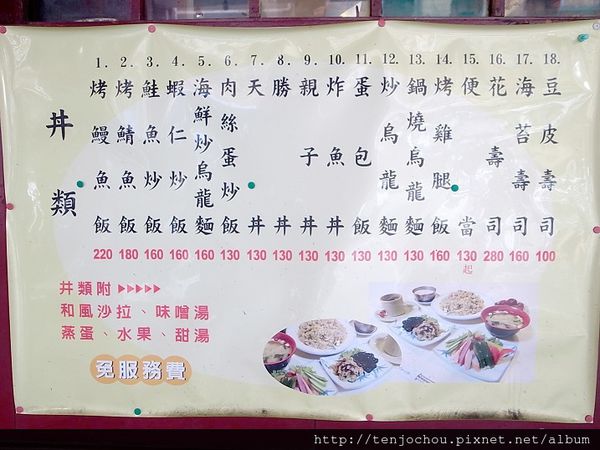 丼類
1. 烤鰻魚飯 220
2. 烤鯖魚飯 180
3. 鮭魚炒飯 160
4. 蝦仁炒飯 160
5. 海鮮炒烏龍麵 160
6. 肉絲蛋炒飯 130
7. 天丼 130
8. 勝丼 130
9. 親子丼 130
10. 炸魚丼 130
11. 蛋包飯 130
12. 炒烏龍麵 130
13. 鍋燒烏龍麵 130
14. 烤雞腿飯 160
15. 便當 130起
16. 花壽司 280
17. 海苔壽司 160
18. 豆皮壽司 100
丼類附▶▶▶▶▶
和風沙拉、味噌湯
蒸蛋、水果、甜湯
免服務費
http://tenjochou.pixnet.net/album